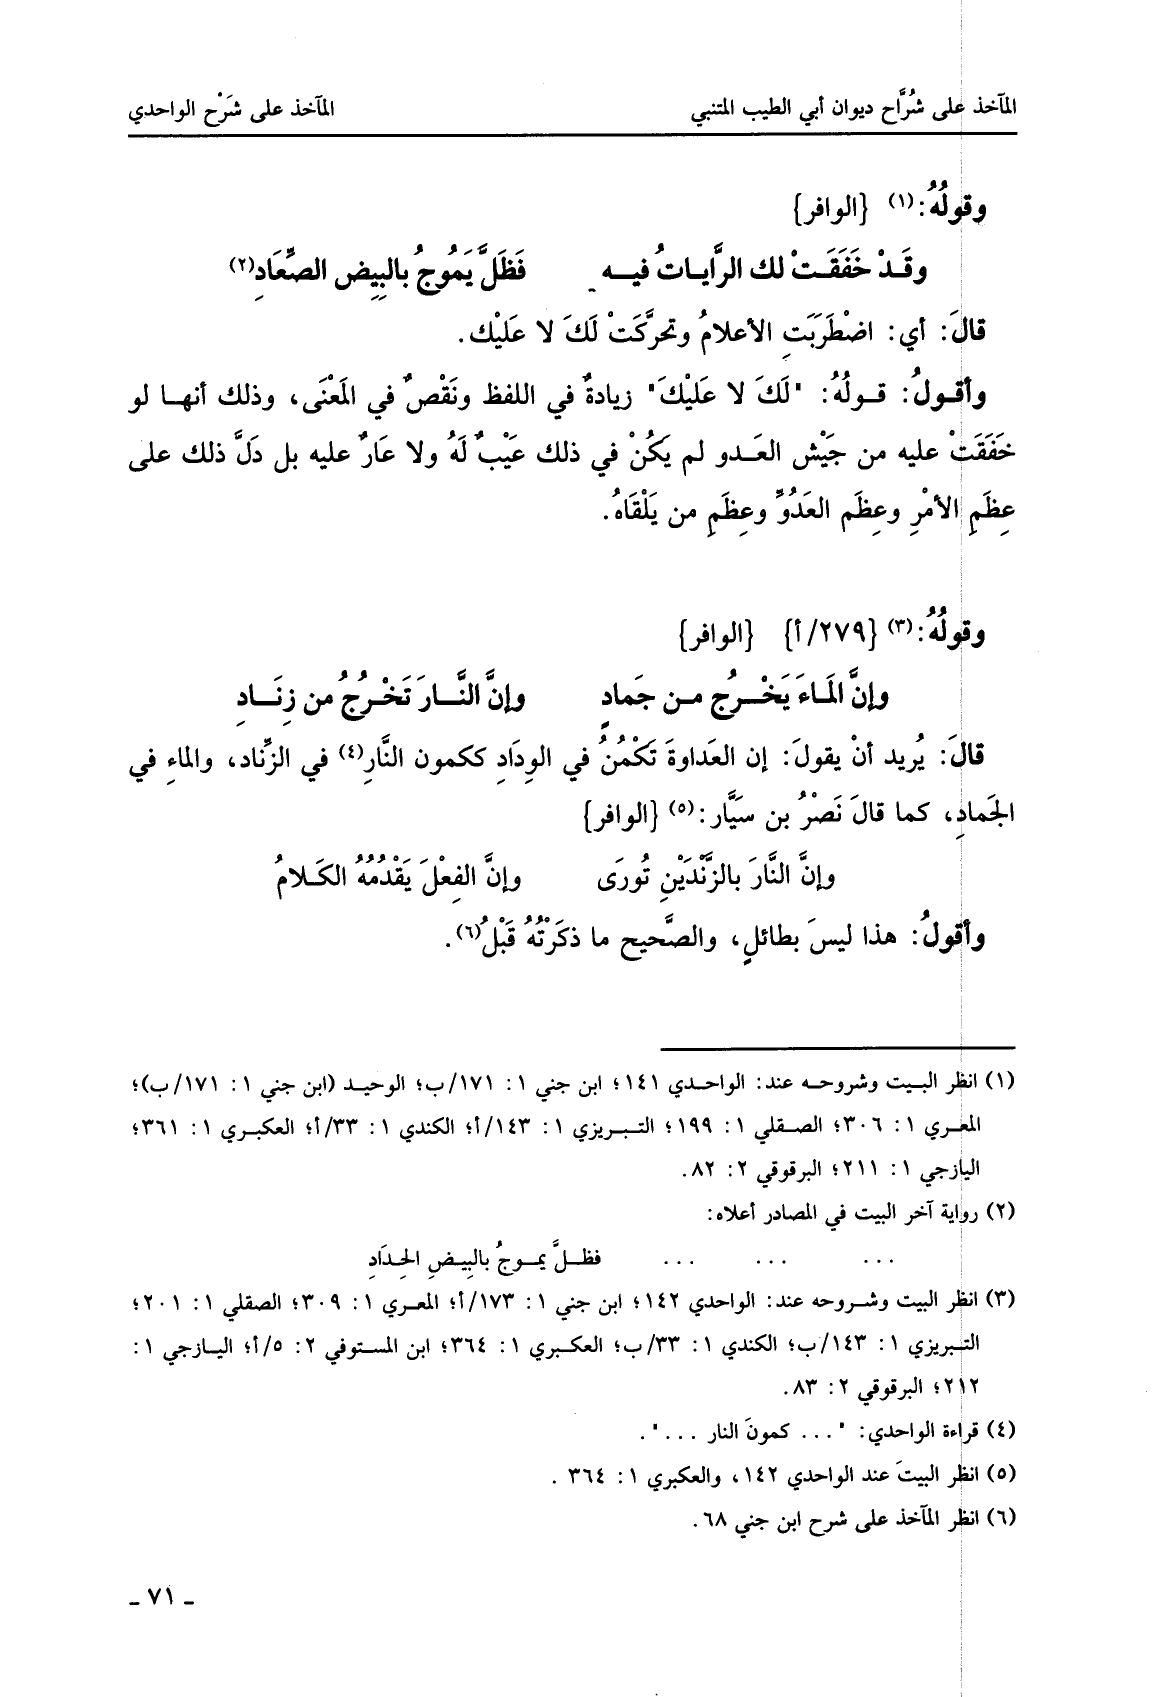 المآخذ على شُرَّاح ديوان أبي الطيب المتنبي المآخذ على شَرْح الواحدي
وقولُهُ:(١) {الوافر}
وقَـدْ خَفَقَـتْ لك الرَّايـاتُ فيـه فَظَلَّ يَمُوجُ بالبِيِض الصِّعَادِ(٢)
قالَ: أي: اضْطَرَبَتِ الأعلامُ وتحرَّكَتْ لَكَ لا عَلَيْك.
وأقـولُ: قـولُهُ: "لَكَ لا عَلَيْكَ" زيادةٌ في اللفظ ونَقْصٌ في المَعْنَى، وذلك أنهـا لو
خَفَقَتْ عليه من جَيْش العَـدو لم يَكُنْ في ذلك عَيْبٌ لَهُ ولا عَارٌ عليه بل دَلَّ ذلك على
عِظَمِ الأمْرِ وعِظَم العَدُوِّ وعِظَمِ من يَلْقَاهُ.
وقولُهُ:(٣) {٢٧٩/أ} {الوافر}
وإنَّ المَـاءَ يَخْـرُج مـن جَمادٍ وإنَّ النَّـارَ تَخْـرُجُ من زِنَـادِ
قالَ: يُريد أنْ يقولَ: إن العَداوةَ تَكْمُنُ في الوِدَادِ ككمون النَّارِ(٤) في الزِّناد، والماءِ في
الجَمادِ، كما قالَ نَصْرُ بن سَيَّار:(٥) {الوافر}
وإنَّ النَّارَ بالزَّنْدَيْنِ تُورَى وإنَّ الفِعْلَ يَقْدُمُهُ الكَـلامُ
وأقولُ: هذا ليسَ بطائلٍ، والصَّحيح ما ذكَرْتُهُ قَبْلُ(٦).
(١) انظر البـيت وشروحـه عند: الواحـدي ١٤١؛ ابن جني ١: ١٧١/ب؛ الوحيـد (ابن جني ١: ١٧١/ب)؛
المعـري ١: ٣٠٦؛ الصـقلي ١: ١٩٩؛ التـبـريزي ١: ١٤٣/أ؛ الكندي ١: ٣٣/أ؛ العكبـري ١: ٣٦١؛
اليازجي ١: ٢١١؛ البرقوقي ٢: ٨٢.
(٢) رواية آخر البيت في المصادر أعلاه:
... ... ... فظـلَّ يمـوجُ بالبِيـضِ الحِـدَادِ
(٣) انظر البيت وشـروحه عند: الواحدي ١٤٢؛ ابن جني ١: ١٧٣/أ؛ المعـري ١: ٣٠٩؛ الصقلي ١: ٢٠١؛
التـبريزي ١: ١٤٣/ب؛ الكندي ١: ٣٣/ب؛ العكـبري ١: ٣٦٤؛ ابن المسـتوفي ٢: ٥/أ؛ اليـازجي ١:
٢١٢؛ البرقوقي ٢: ٨٣.
(٤) قراءة الواحدي: "... كمونَ النار ...".
(٥) انظر البيتَ عند الواحدي ١٤٢، والعكبري ١: ٣٦٤ .
(٦) انظر المآخذ على شرح ابن جني ٦٨.
ـ ٧١ ـ